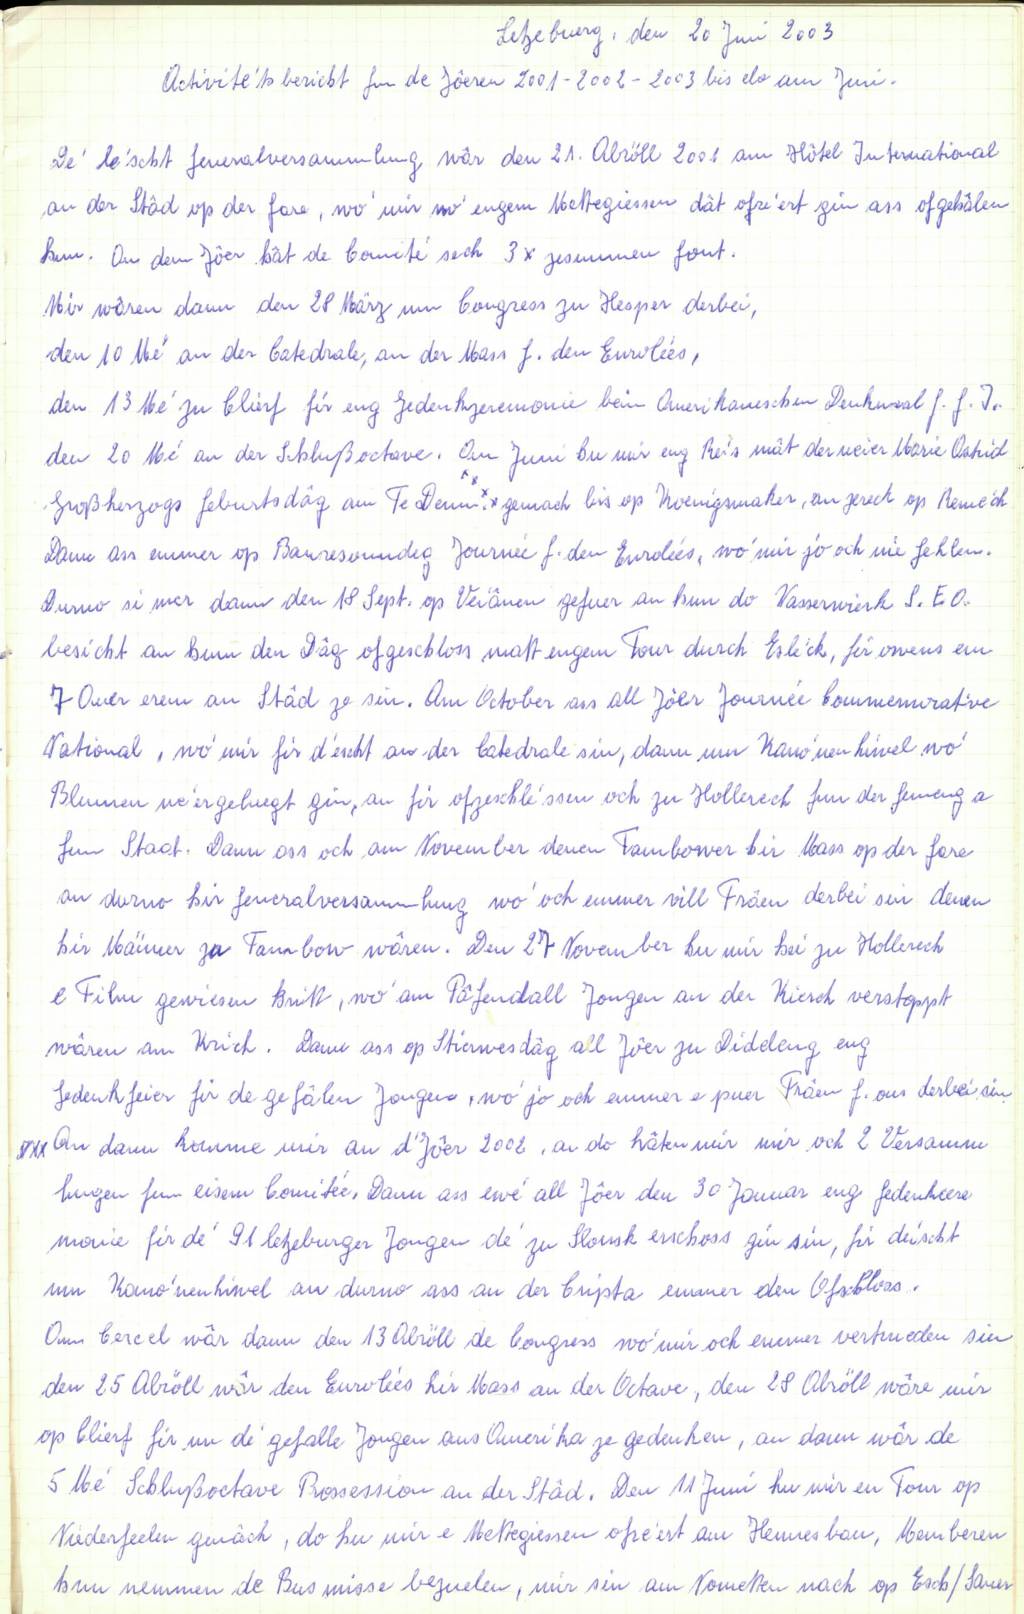 Letzeburg, den 20 Juni 2003
Activitéitsbericht fun de Jôeren 2001-2002-2003 bis elo am Juni.
Dé lé'scht Generalversammlung wâr den 21. Abröll 2001 am Hôtel International
an der Stâd op der Gare, wo' mir no' engem Mettegiessen dât ofre'ert gin ass ofgehâlen
hun. An dem Jôer hât de Comité sech 3x zesummen font.
Mir wâren dann den 28 März um Congress zu Hesper derbei,
den 10 Mé an der Catedrale, an der Mass f. den Enrolées,
den 13 Mé zu Clierf fir eng Gedenkzeremonie beim Amerikaneschen Denkmal f. G. I.
den 20 Mé an der Schlußoctave. Am Juni hu mir eng Reis mât der neier Marie Astrid
Großherzogs Geburtsdâg am Te Deum xxxx gemach bis op Koenigsmaker, an zereck op Remeich
Dann ass emmer op Bauresonndeg Journée f. den Enrolées, wo' mir jo och nie fehlen.
Durno si mer dann den 18 Sept. op Veiânen gefuer an hun do Vasserwierk S. E. O.
besicht an hunn den Dâg ofgeschloss matt engem Tour durch Esleck, fir owens em
7 Auer erem an Stâd ze sin. Am October ass all Jôer Journée Commemorative
National, wo' mir fir d'éischt an der Catedrale sin, dann um Kano'nenhiwel wo'
Blumen ne'ergeluegt gin, an fir ofzeschlé'ssen och zu Hollerech fun der Gemeng a
fum Staat. Dann ass och am November denen Tambower hir Mass op der Gare
an durno hir Generalversammlung wo' och emmer vill Frâen derbei sin denen
hir Männer zu Tambow wâren. Den 27 November hu mir hei zu Hollerech
e Film gewiesen kritt, wo' am Pâfendall Jongen an der Kierch verstoppt
wâren am Krich. Dann ass op Stierwesdâg all Jôer zu Diddeleng eng
Gedenkfeier fir de gefâlen Jongen, wo' jo och emmer e puer Frâen f. ons derbei sin.
xxx An dann komme mir an d'Jôer 2002, an do hâten mir mir och 2 Versamm
lungen fun eisem Comitée. Dann ass ewé all Jôer den 30 Januar eng Gedenkzere
monie fir dé 91 letzeburger Jongen dé zu Slonsk erschoss gin sin, fir déischt
um Kano'nenhiwel an durno ass an der Cripta emmer den Ofschloss.
Am Cercel wâr dann den 13 Abröll de Congress wo' mir och emmer vertrueden sin
den 25 Abröll wâr den Enrolées hir Mass an der Octave, den 28 Abröll wâre mir
op Clierf fir un dé gefalle Jongen aus Amerika ze gedenken, an dann wâr de
5 Mé Schlußoctave Prossession an der Stâd. Den 11 Juni hu mir en Tour op
Niederfeelen gemâch, do hu mir e Mettegiessen ofre'ert am Hennesbau, Memberen
hun nemmen de Bus misse bezuelen, mir sin am Nometten nach op Esch/Sauer